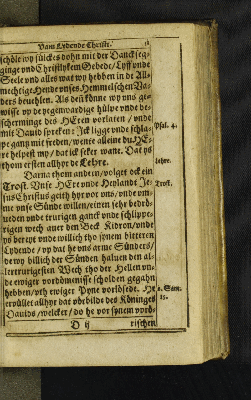 Vam Lydende Christi.
schöle wy sülckes dohn mit der Dancksegginge
vnd Christlykem Gebede / Lyff vnde
Seele vnd alles wat wy hebben in de Allmechtige
Hende vnses Hemmelschen Vaders
beuehlen. Als den könne wy vns gewisse
vp de yegenwardige hülpe vnde bescherminge
des HEren vorlaten / vnde
mit Dauid spreken : Ick ligge vnde schlape
gantz mit freden / wente alleine du HEre
helpest my / dat ick seker wane. Dat ys
thom ersten allhyr de Lehre.
Psal. 4.
Lehre.
Darna them andern / volget ock ein
Trost. Vnse HEre vnde Heylandt Jesus
Christus geith hyr vor vns / vnde vmme
vnse Sünde willen / einen sehr bedröueden
vnde trurigen ganck vnde schlipperigen
wech auer den Beck Kidron / vnde
ys bereyt vnde willich tho synem bitteren
Lydende / vp dat he vns arme Sünders /
de wy billich der Sünden haluen den allertrurigesten
Wech tho der Hellen vnde
ewiger vordömenisse scholden gegahn
hebben / vth ewiger Pyne vorlösede. He
erfüllet allhyr dat vörbilde des Köninges
Dauids / welcker / do he vor synem vord-
Trost.
2. Sam.
15.
D ij
rischen